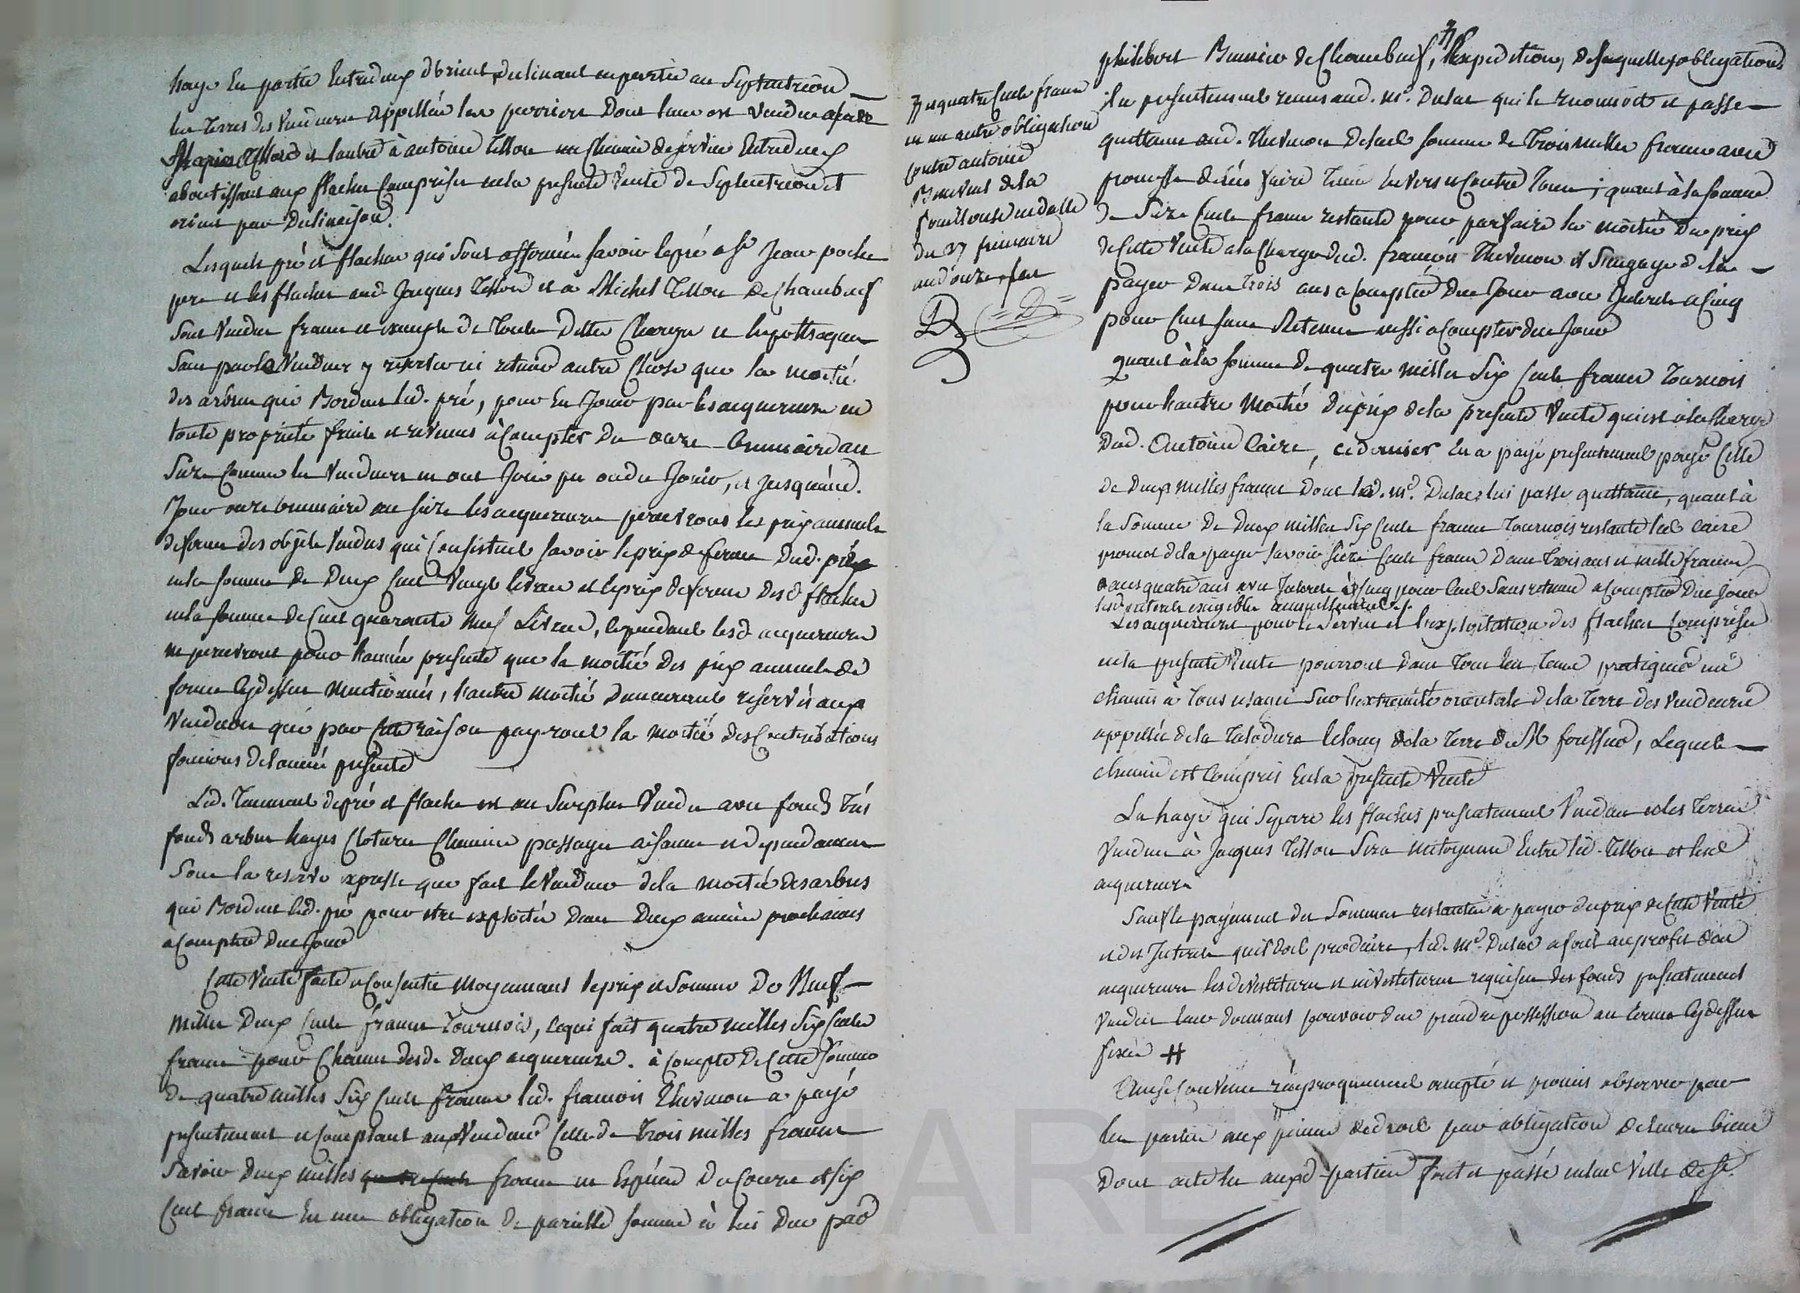 haye en partie entredeux d'orient declinant en partie au Septentrion
les terres des vendeurs appellée les perriere dont l'une est vendue
Tissot et l'autre à antoine Tissot un chemin de service entredeux
aboutissant aux flaches comprises en la presente vente de Septentrion et
orient par declinaison.
Lesquels pré et flaches qui sont affermés savoir le pré a Sr Jean poche
pere et les flaches aud. Jacques Tissot et a Michel Tissot de Chambœuf
sont vendus francs et exempts de toutes dettes charges et hypotheques
sans par les vendeurs y reserver ni retenir autre chose que la moitié
des arbres qui bordent led. pré, pour en jouir par les acquereurs en
toute propriété fruits et revenus à compter du onze brumaire an
seize comme les vendeurs en ont joui pu ou du jouir, et jusqu'aud.
jour onze brumaire an seize les acquereurs percevront les prix annuels
de ferme des objets vendus qui consistent savoir le prix de ferme dud. pré
en la somme de deux cent vingt livres et le prix de ferme desd. flaches
en la somme de cent quarante neuf livres, cependant lesd. acquereurs
ne percevront pour l'année presente que la moitié des prix annuels de
ferme cydessus mentionnés, l'autre moitié demeurant reservée aux
vendeurs qui par cette raison payeront la moitié des contributions
foncieres de l'année presente
Led. tenement de pré et flache est au surplus vendu avec fonds tres
fonds arbres hayes cloture chemins passages aisances et dependances
sous la reserve expresse que fait le vendeur de la moitié des arbres
qui bordent led. pré pour etre exploités dans deux années prochaines
a compter de ce jour
Cette vente faite et consentie moyennant le prix et somme de neuf
mille deux cents francs tournois, ce qui fait quatre milles six cents
francs pour chacun desd. deux acquereurs. à compte de cette somme
de quatre milles six cents francs led. françois Thevenon a payé
presentement et comptant aux vendeurs celle de trois milles francs
savoir deux milles quatre cents francs en espèces de cours et six
cent francs en une obligation de pareille somme à lui due par
et quatre cents francs
en une autre obligation
contre antoine
de la
en datte
du 27 frimaire
an douze
philibert de Chambœuf, expeditions desquelles obligations
il a presentement remis aud. Mr. Dulac qui le reconnoit et passe
quittance aud. Thevenon de lad. somme de trois milles francs avec
promesse de l'en faire tenir envers et contre tous; quant à la somme
de seize cents francs restante pour parfaire la moitié du prix
de cette vente a la charge dud. françois Thevenon il s'engage de la
payer dans trois ans a compter de ce jour avec interets a cinq
pour cent sans retenue aussi a compter de ce jour
quant à la somme de quatre milles six cents francs tournois
pour l'autre moitié du prix de la presente vente qui est à la charge
dud. Antoine Caire, ce dernier en a payé presentement celle
de deux milles francs dont led. Mr. Dulac lui passe quittance, quant à
la somme de deux milles six cents francs tournois restante led. Caire
promet de la payer savoir seize cents francs dans trois ans et mille francs
dans quatre ans avec interets à cinq pour cent sans retenue a compter de ce jour
lesd. interets exigibles annuellement.
Les acquereurs pour le service et l'exploitation des flaches comprises
en la presente vente pourront dans tous les tems pratiquer un
chemin à tous usages sur l'extremité orientale de la terre des vendeurs
appellée de la le long de la terre de M. lequel
chemin est compris en la presente vente
La haye qui separe les flaches presentement vendues et les terres
vendues à Jacques Tissot sera mitoyenne entre led. Tissot et lesd.
acquereurs
Sauf le payement des sommes restantes a payer du prix de cette vente
et des interets qu'il doit produire, led. Mr. Dulac a fait au profit des
acquereurs les devestitures et investitures requises des fonds presentement
vendus leur donnant pouvoir d'en prendre possession au terme cydessus
fixé #
Ainsi convenu reciproquement accepté et promis observer par
les parties aux peines de droit par obligation de leurs biens
dont acte lu auxd. parties fait et passé en la ville de St